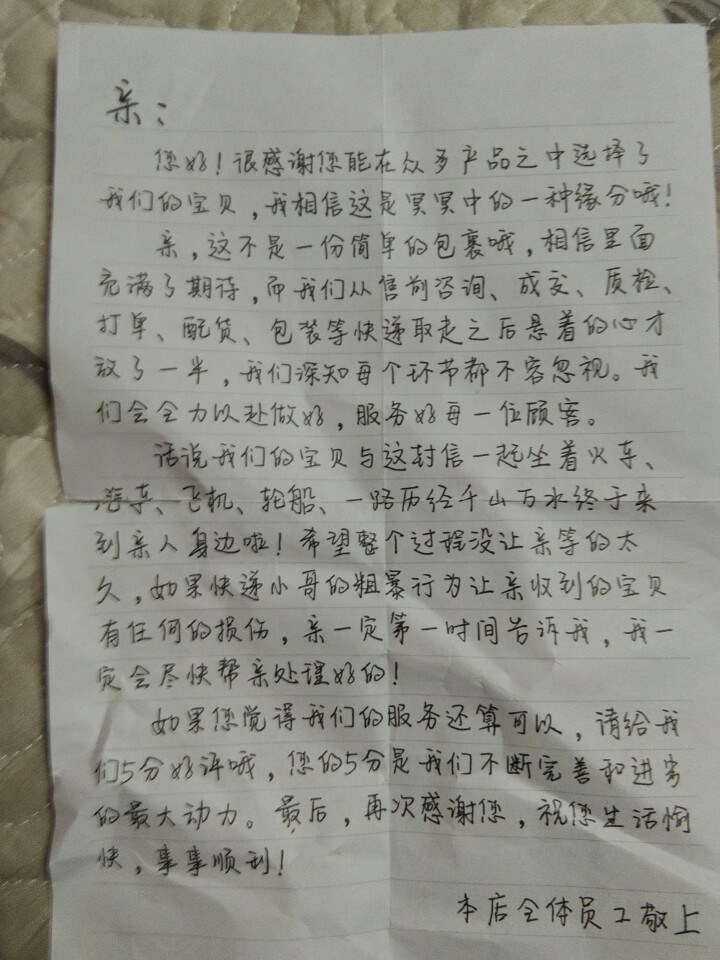 亲：
您好！很感谢您能在众多产品之中选择了
我们的宝贝，我相信这是冥冥中的一种缘分哦！
亲，这不是一份简单的包裹哦，相信里面
充满了期待，而我们从售前咨询、成交、质检、
打单、配货、包装等快递取走之后悬着的心才
放了一半，我们深知每个环节都不容忽视。我
们会全力以赴做好，服务好每一位顾客。
话说我们的宝贝与这封信一起坐着火车、
汽车、飞机、轮船、一路历经千山万水终于来
到亲人身边啦！希望整个过程没让亲等的太
久，如果快递小哥的粗暴行为让亲收到的宝贝
有任何的损伤，亲一定第一时间告诉我，我一
定会尽快帮亲处理好的！
如果您觉得我们的服务还算可以，请给我
们5分好评哦，您的5分是我们不断完善和进步
的最大动力。最后，再次感谢您，祝您生活愉
快，事事顺利！
本店全体员工敬上